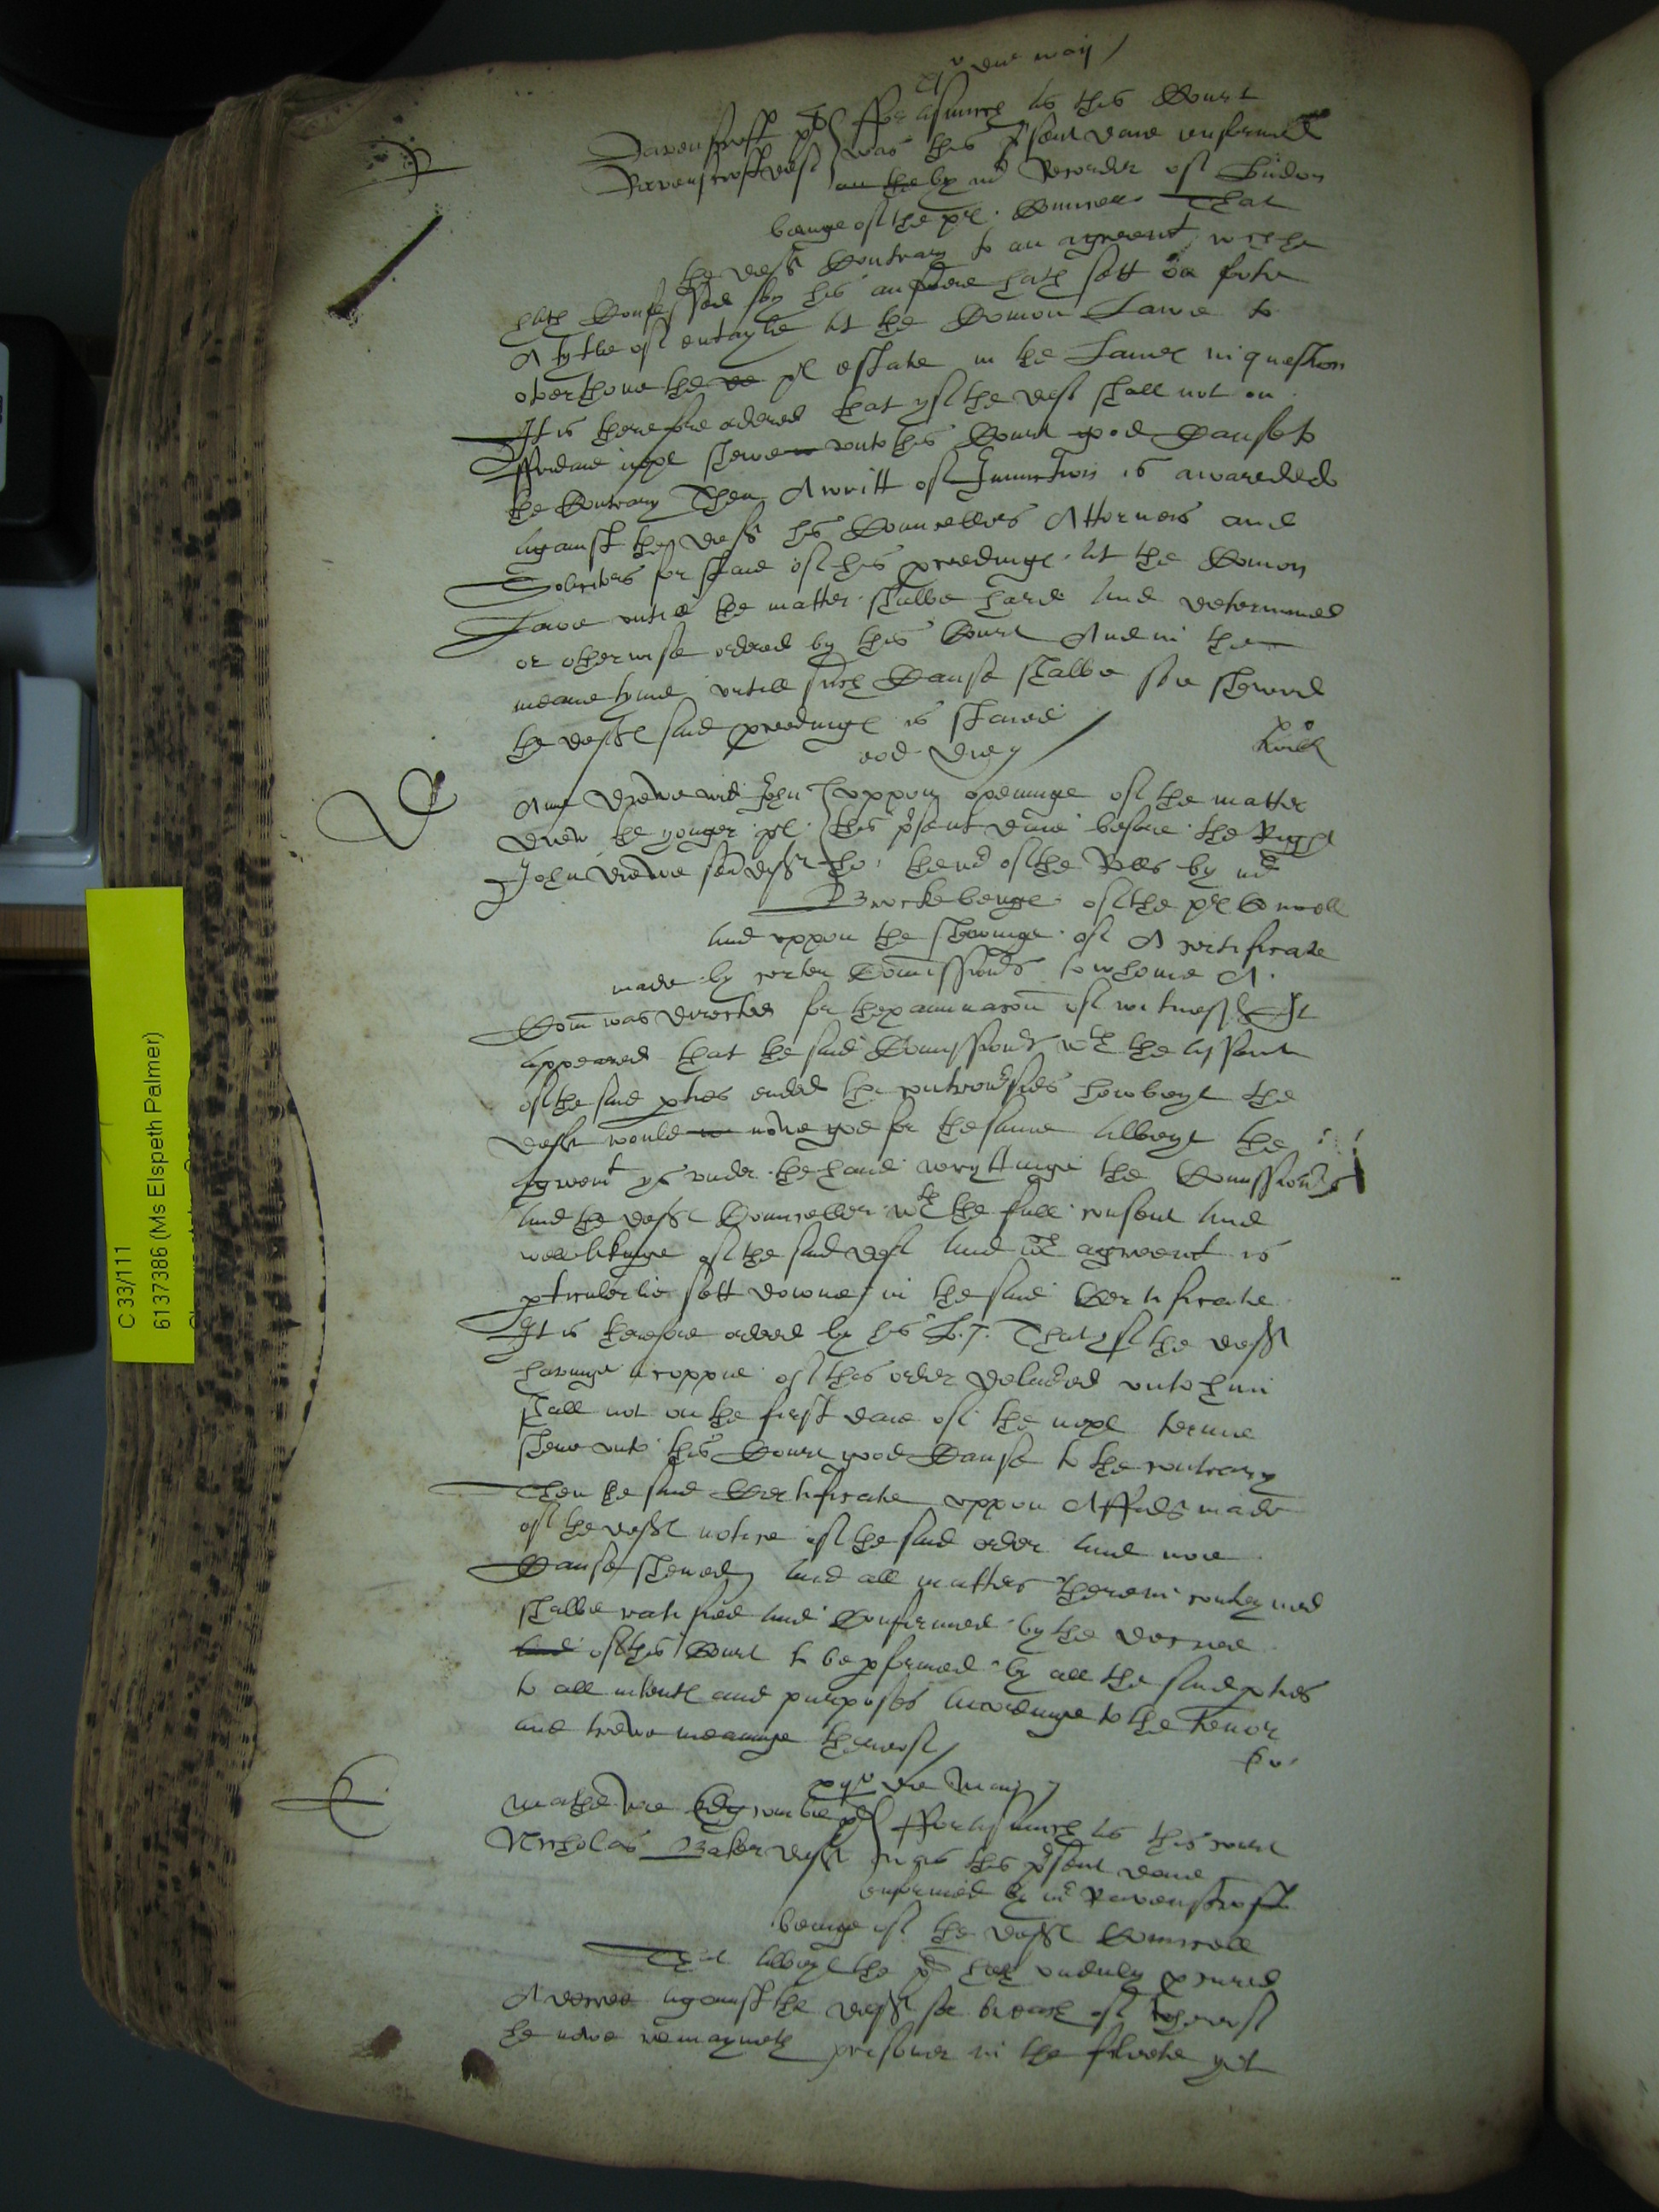 die maij
Ravenscroft pl Forasmuch as this Court
Ravenscroft def was this p'sent daie enformed
by mr Recorder of London
beinge of the pl Councell That
the deft Contrary to an agreemt wch he
hath Confessed by his answere hath sett on foote
A tytle of entayle at the Comon Lawe to
overthrowe the pl estate in the Landes in question
It is therefore ordered that yf the deft shall not on
Frydaie next shewe unto this Court good Cause to
the Contrary Then A writt of Iniunction is awarded
against the deft his Councellors Attorneis and
Solicitors for staie of his proceedinge at the Comon
Lawe untill the matter shalbe hard and determined
or otherwise ordered by this Court And in the
meane tyme untill such Cause shalbe soe shewed
the deftes said proceedinge is staied
eod die
Anne Drewe wid John uppon openinge of the matter
Drew the yonger pl this p'sent daie before the Right
John Drewe sen deft ho: the mr of the Rolls by mr
Brocke beinge of the pl Councell
and uppon the shewinge of A certificate
made by certen Comissioners to whome A
Com was directed for thexaminacon of witnesses It
appeared that the said Comissioners wth the assent
of the said pties ended the controversies howbeyt the
deft would nowe goe from the same albeyt the
agreemt ys under the hand wryttinge the Comissioners
and the deftes Councellor wth the full consent and
well likinge of the said deft and wch agreemt is
pticulerlie sett downe in the said Certificate
It is therefore ordered by his L. That yf the deft
havinge a coppie of this order delivered unto him
shall not on the first daie of the next terme
shew unto this Court good Cause to the contrary
Then the said Certificate uppon Affid made
of the deftes notice of the said order and noe
Cause shewed and all matters therein conteyned
shalbe ratified and Confirmed by the decree
and of this Court to be pformed by all the said pties
to all intentes and purposes accordinge to the tenor
and trewe meaninge thereof
die Maij
pl Forasmuch as this court
Nicholas Baker deft was this p'sent daie
enformed by mr Ravenscroft
beinge of the deftes Councell
That albeyt the pl hath unduly procured
A decree against the deft for breach of thereof
he nowe remayneth prisoner in the fleete yet
C 33/111
6137386 (Ms Elspeth Palmer)